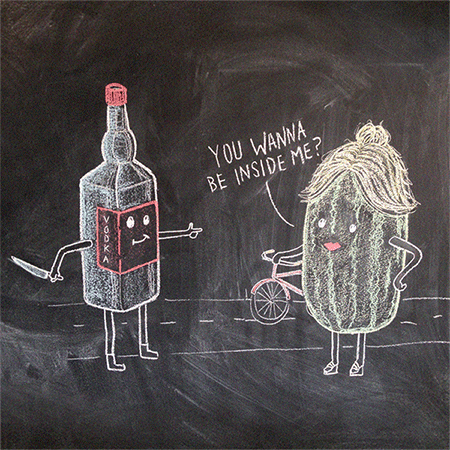 YOU WANNA
BE INSIDE ME?
VODKA